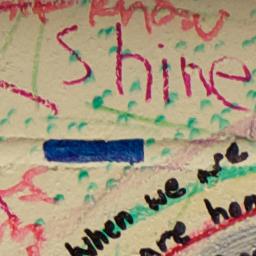 know
Shine
when we are
are